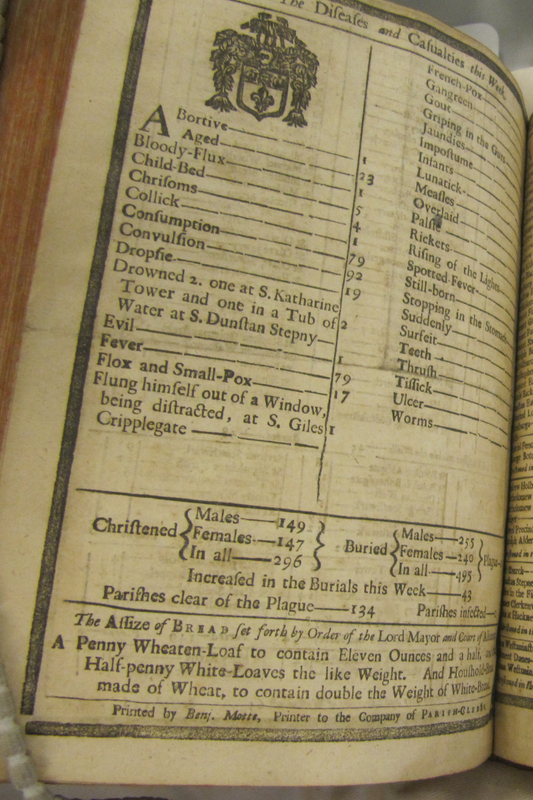 The Diseases and Casualties this Week.
ABortive
Aged 1
Bloody-Flux 23
Child-Bed 1
Chrisoms 5
Collick 4
Consumption 1
Convulsion 79
Dropsie 92
Drowned 2. one at S. Katharine 19
Tower and one in a Tub of
Water at S. Dunstan Stepny 2
Evil 1
Fever 79
Flox and Small-Pox 17
Flung himself out of a Window,
being distracted, at S. Giles 1
Cripplegate
French-Pox
Gangreen
Gout
Griping in the Guts
Jaundies
Impostume
Infants
Lunatick
Measles
Overlaid
Palsie
Rickets
Rising of the Lights
Spotted-Fever
Still-born
Stopping in the Stomach
Suddenly
Surfeit
Teeth
Thrush
Tissick
Ulcer
Worms
Christened { Males 149 Females 147 In all 296 }
Buried { Males 255 Females 240 In all 495 } Plague
Increased in the Burials this Week 43
Parishes clear of the Plague 134 Parishes infected
The Assize of BREAD set forth by Order of the Lord Mayor and Court of
A Penny Wheaten-Loaf to contain Eleven Ounces and a half,
Half-penny White-Loaves the like Weight. And Houshold-
made of Wheat, to contain double the Weight of White-Bread.
Printed by Benj. Motte, Printer to the Company of PARISH-CLERKS.